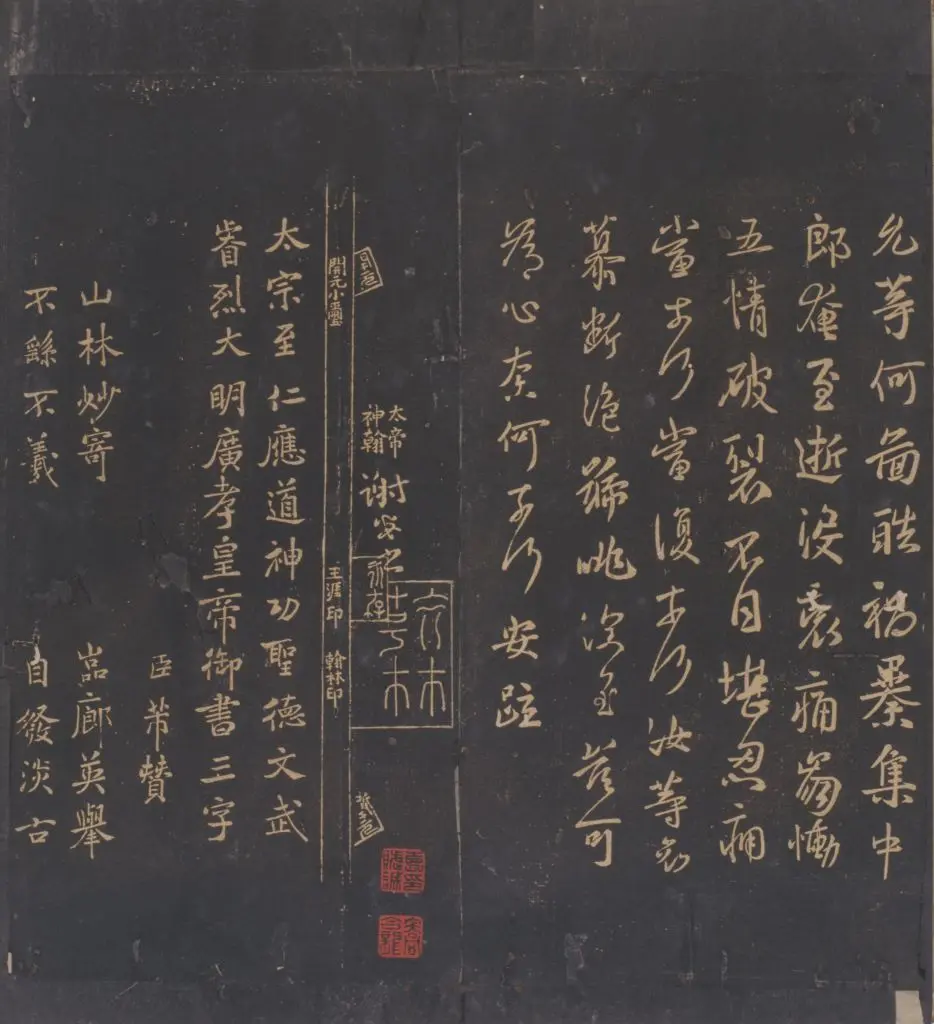 允等何啚酷禍暴集中
郎奄至逝没哀痛崩慟
五情破裂不自堪忍痛
當奈何當復奈何汝等哀
慕斷絕號咷深至豈可
為心奈何奈何安疏
太帝
神翰
謝安
永存
開元小璽
王涯印
翰林印
太宗至仁應道神功聖德文武
睿烈大明廣孝皇帝御書三字
臣芾贊
山林妙寄 巖廊英舉
不繇不羲 自發淡古